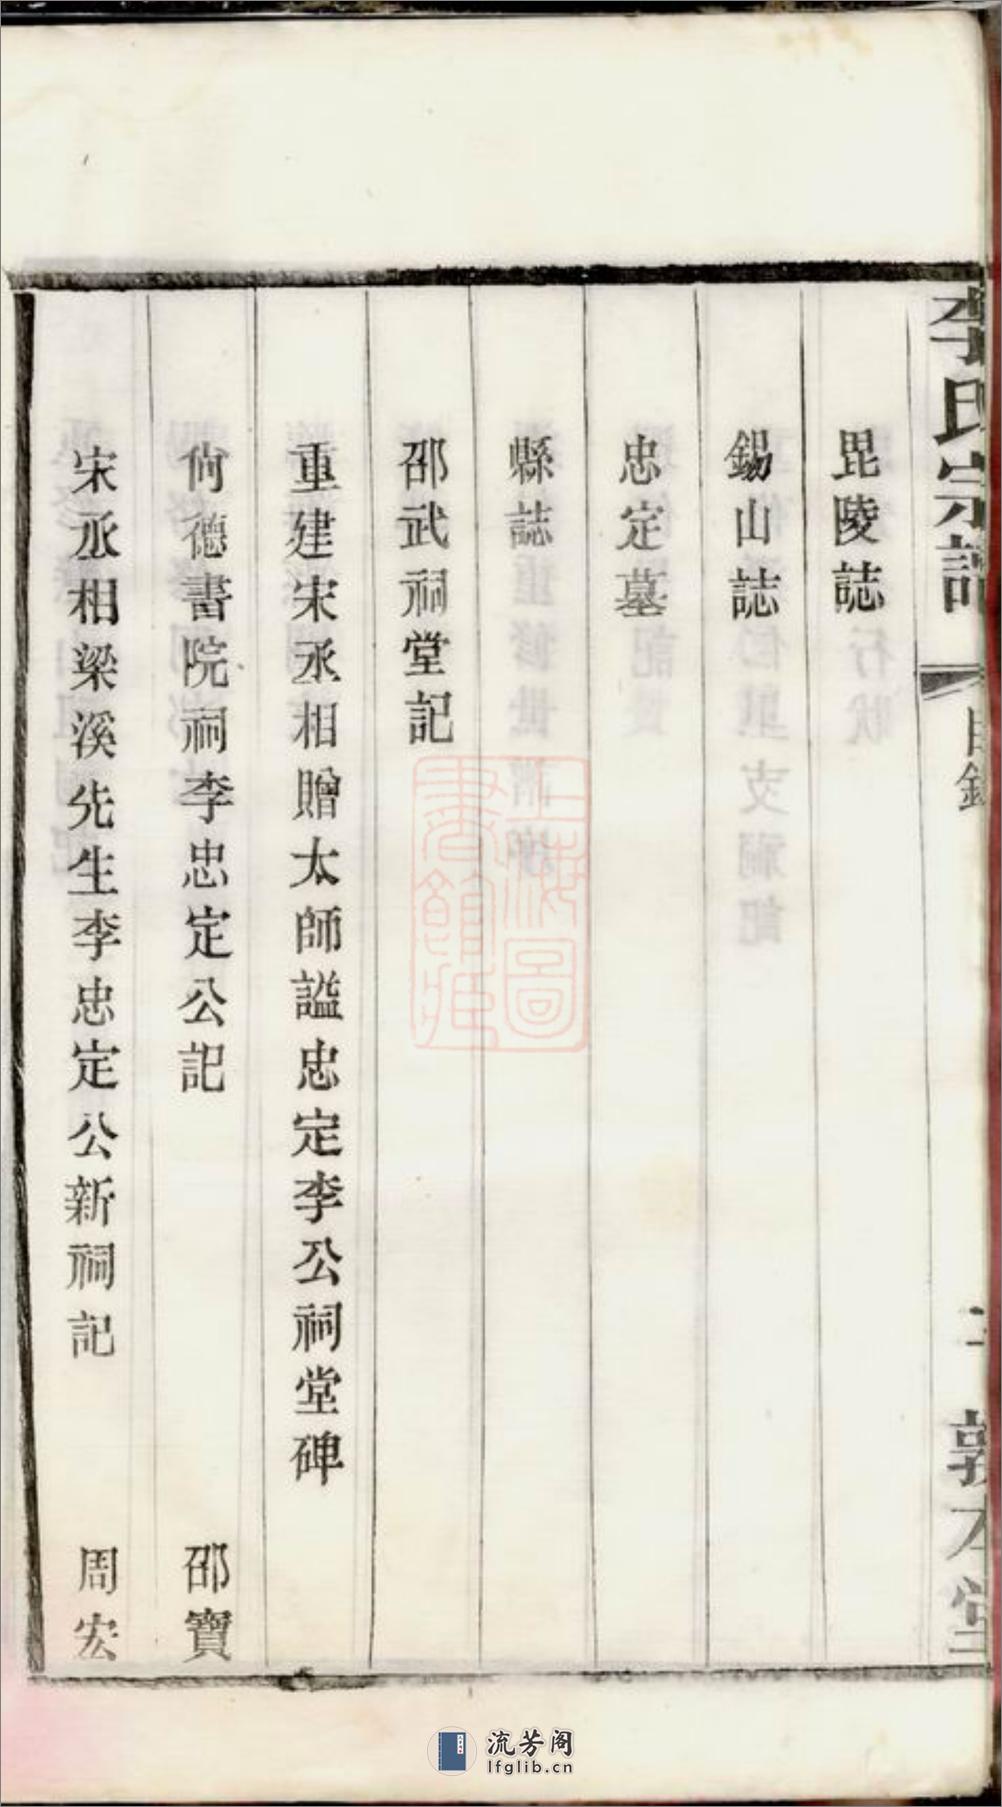 李氏宗譜
目錄
敦本堂
毘陵誌
錫山誌
忠定墓
縣誌
邵武祠堂記
重建宋丞相贈太師謚忠定李公祠堂碑
尚德書院祠李忠定公記 邵寶
宋丞相梁溪先生李忠定公新祠記 周宏
上海圖書館藏
流芳阁
lfglib.cn